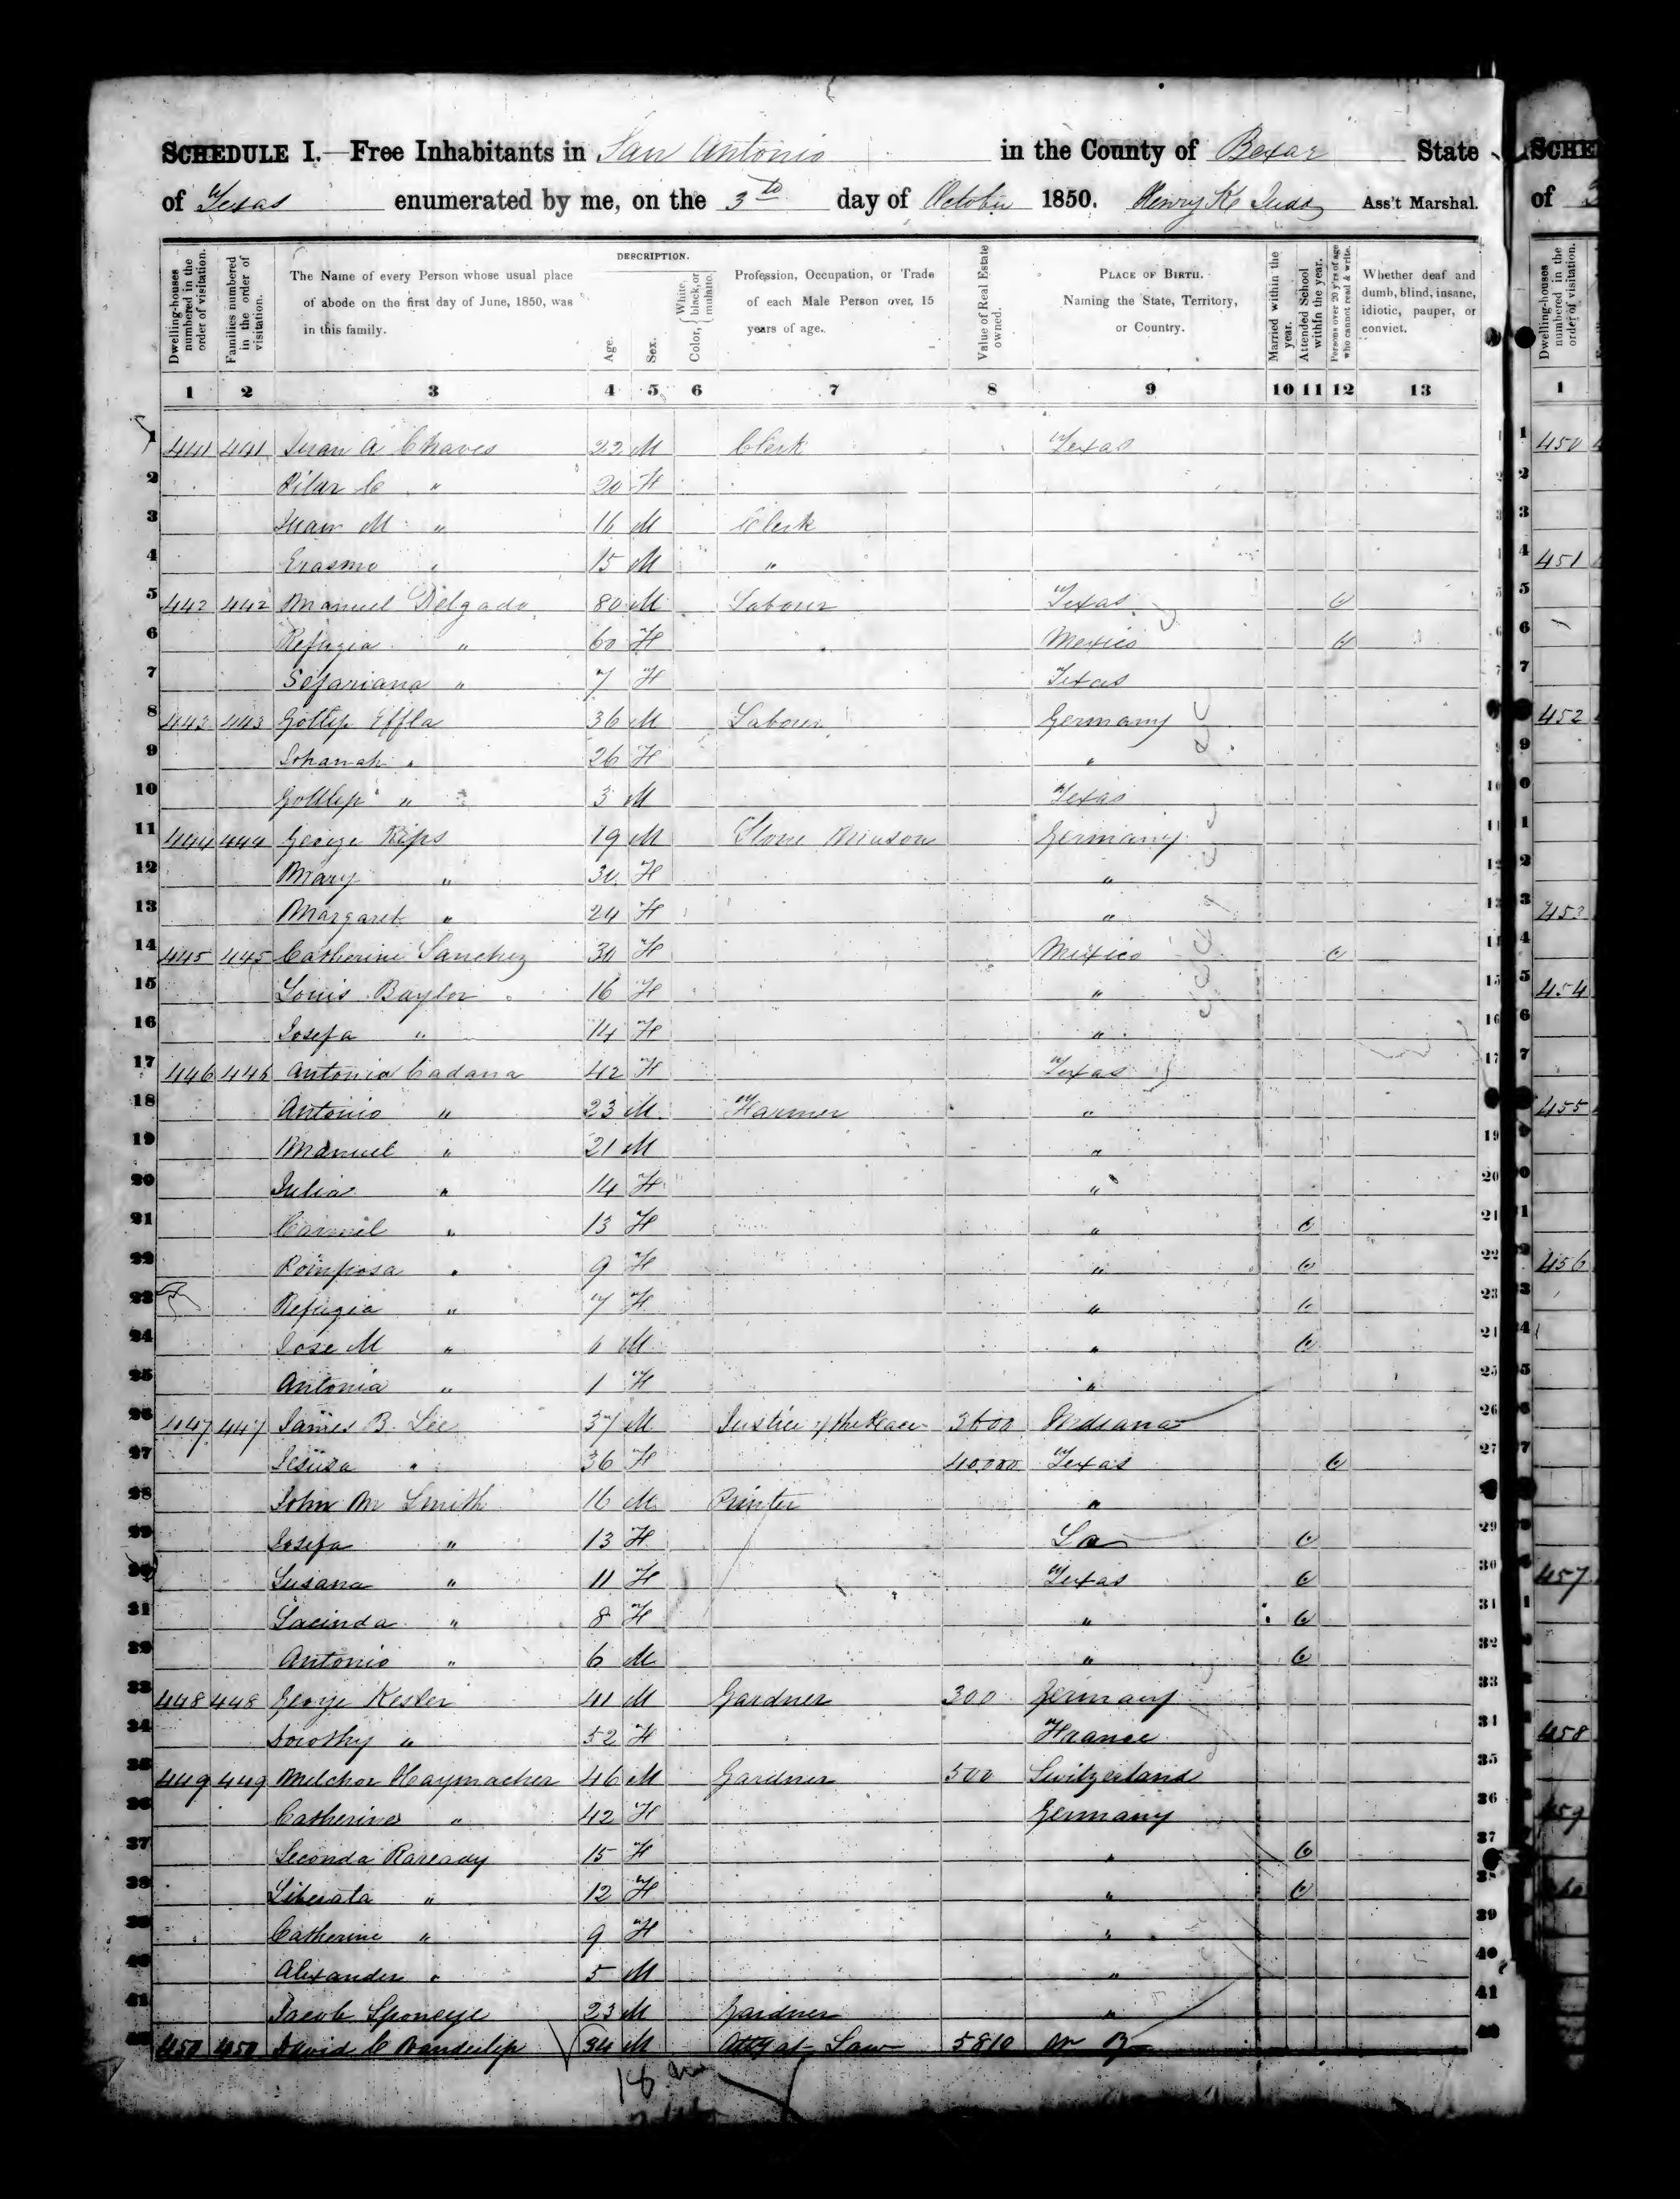 SCHEDULE I.—Free Inhabitants in San Antonio in the County of Bexar State
of Texas enumerated by me, on the 3 day of October 1850. Henry K Ass't Marshal.
Dwelling-houses numbered in the order of visitation.
Families numbered in the order of visitation.
The Name of every Person whose usual place of abode on the first day of June, 1850, was in this family.
DESCRIPTION.
Age.
Sex.
Color, { White, black, or mulatto.
Profession, Occupation, or Trade of each Male Person over 15 years of age.
Value of Real Estate owned.
PLACE OF BIRTH. Naming the State, Territory, or Country.
Married within the year.
Attended School within the year.
Persons over 20 y'rs of age who cannot read & write.
Whether deaf and dumb, blind, insane, idiotic, pauper, or convict.
1 2 3 4 5 6 7 8 9 10 11 12 13
1 441 441 Juan A Chaves 22 M Clerk Texas 1
2 Pilar C " 20 F 2
3 Juan M " 16 M Clerk 3
4 Erasmo " 15 M " 4
5 442 442 Manuel Delgado 80 M Labourer Texas 5
6 Refugia " 60 F Mexico 6
7 Sefariana " 7 F Texas 7
8 443 443 Gottlip Effla 36 M Labourer Germany
9 Johanah " 26 F " 9
10 Gottlip " 3 M Texas 10
11 444 444 George Rips 19 M Stone Mason Germany 11
12 Mary " 30 F " 12
13 Margaret " 24 F " 13
14 445 445 Catherine Sanchez 30 F Mexico 14
15 Louis Baylor 16 F " 15
16 Josefa " 14 F " 16
17 446 446 Antonia Cadana 42 F Texas 17
18 Antonio " 23 M Farmer "
19 Manuel " 21 M " 19
20 Julia " 14 F " 20
21 Carmel " 13 F " 21
22 Pomposa " 9 F " 22
23 Refugia " 7 F " 23
24 Jose M " 6 M " 24
25 Antonia " 1 F " 25
26 447 447 James B. Lee 37 M Justice of the Peace 3600 Indiana 26
27 Jesusa " 36 F 40,000 Texas 27
28 John M Smith 16 M Printer "
29 Josefa " 13 F La 29
30 Susana " 11 F Texas 30
31 Lucinda " 8 F " 31
32 Antonio " 6 M " 32
33 448 448 George Kesler 41 M Gardner 300 Germany 33
34 Dorothy " 52 F France 34
35 449 449 Melchor Haymacher 46 M Gardner 500 Switzerland 35
36 Catherine " 42 F Germany 36
37 Seconda Raready 15 F " 37
38 Liberata " 12 F " 38
39 Catherine " 9 F " 39
40 Alexander " 5 M " 40
41 Jacob Sponeye 23 M Gardner " 41
42 450 450 David C Vanderlip 34 M Atty at Law 5810 N Y 42
18
SCHE
of
Dwelling-houses numbered in the order of visitation.
1
450
451
452
453
454
455
456
457
458
459